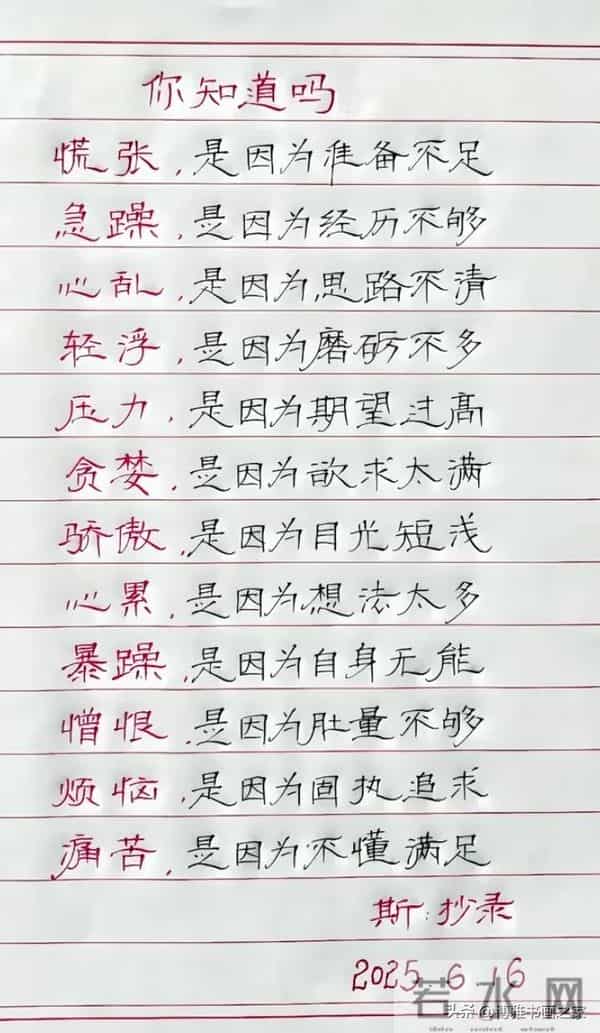 你知道吗
慌张，是因为准备不足
急躁，是因为经历不够
心乱，是因为思路不清
轻浮，是因为磨砺不多
压力，是因为期望过高
贪婪，是因为欲求太满
骄傲，是因为目光短浅
心累，是因为想法太多
暴躁，是因为自身无能
憎恨，是因为肚量不够
烦恼，是因为固执追求
痛苦，是因为不懂满足
斯：抄录
2025.6.16
若水网
头条@博雅书画之家